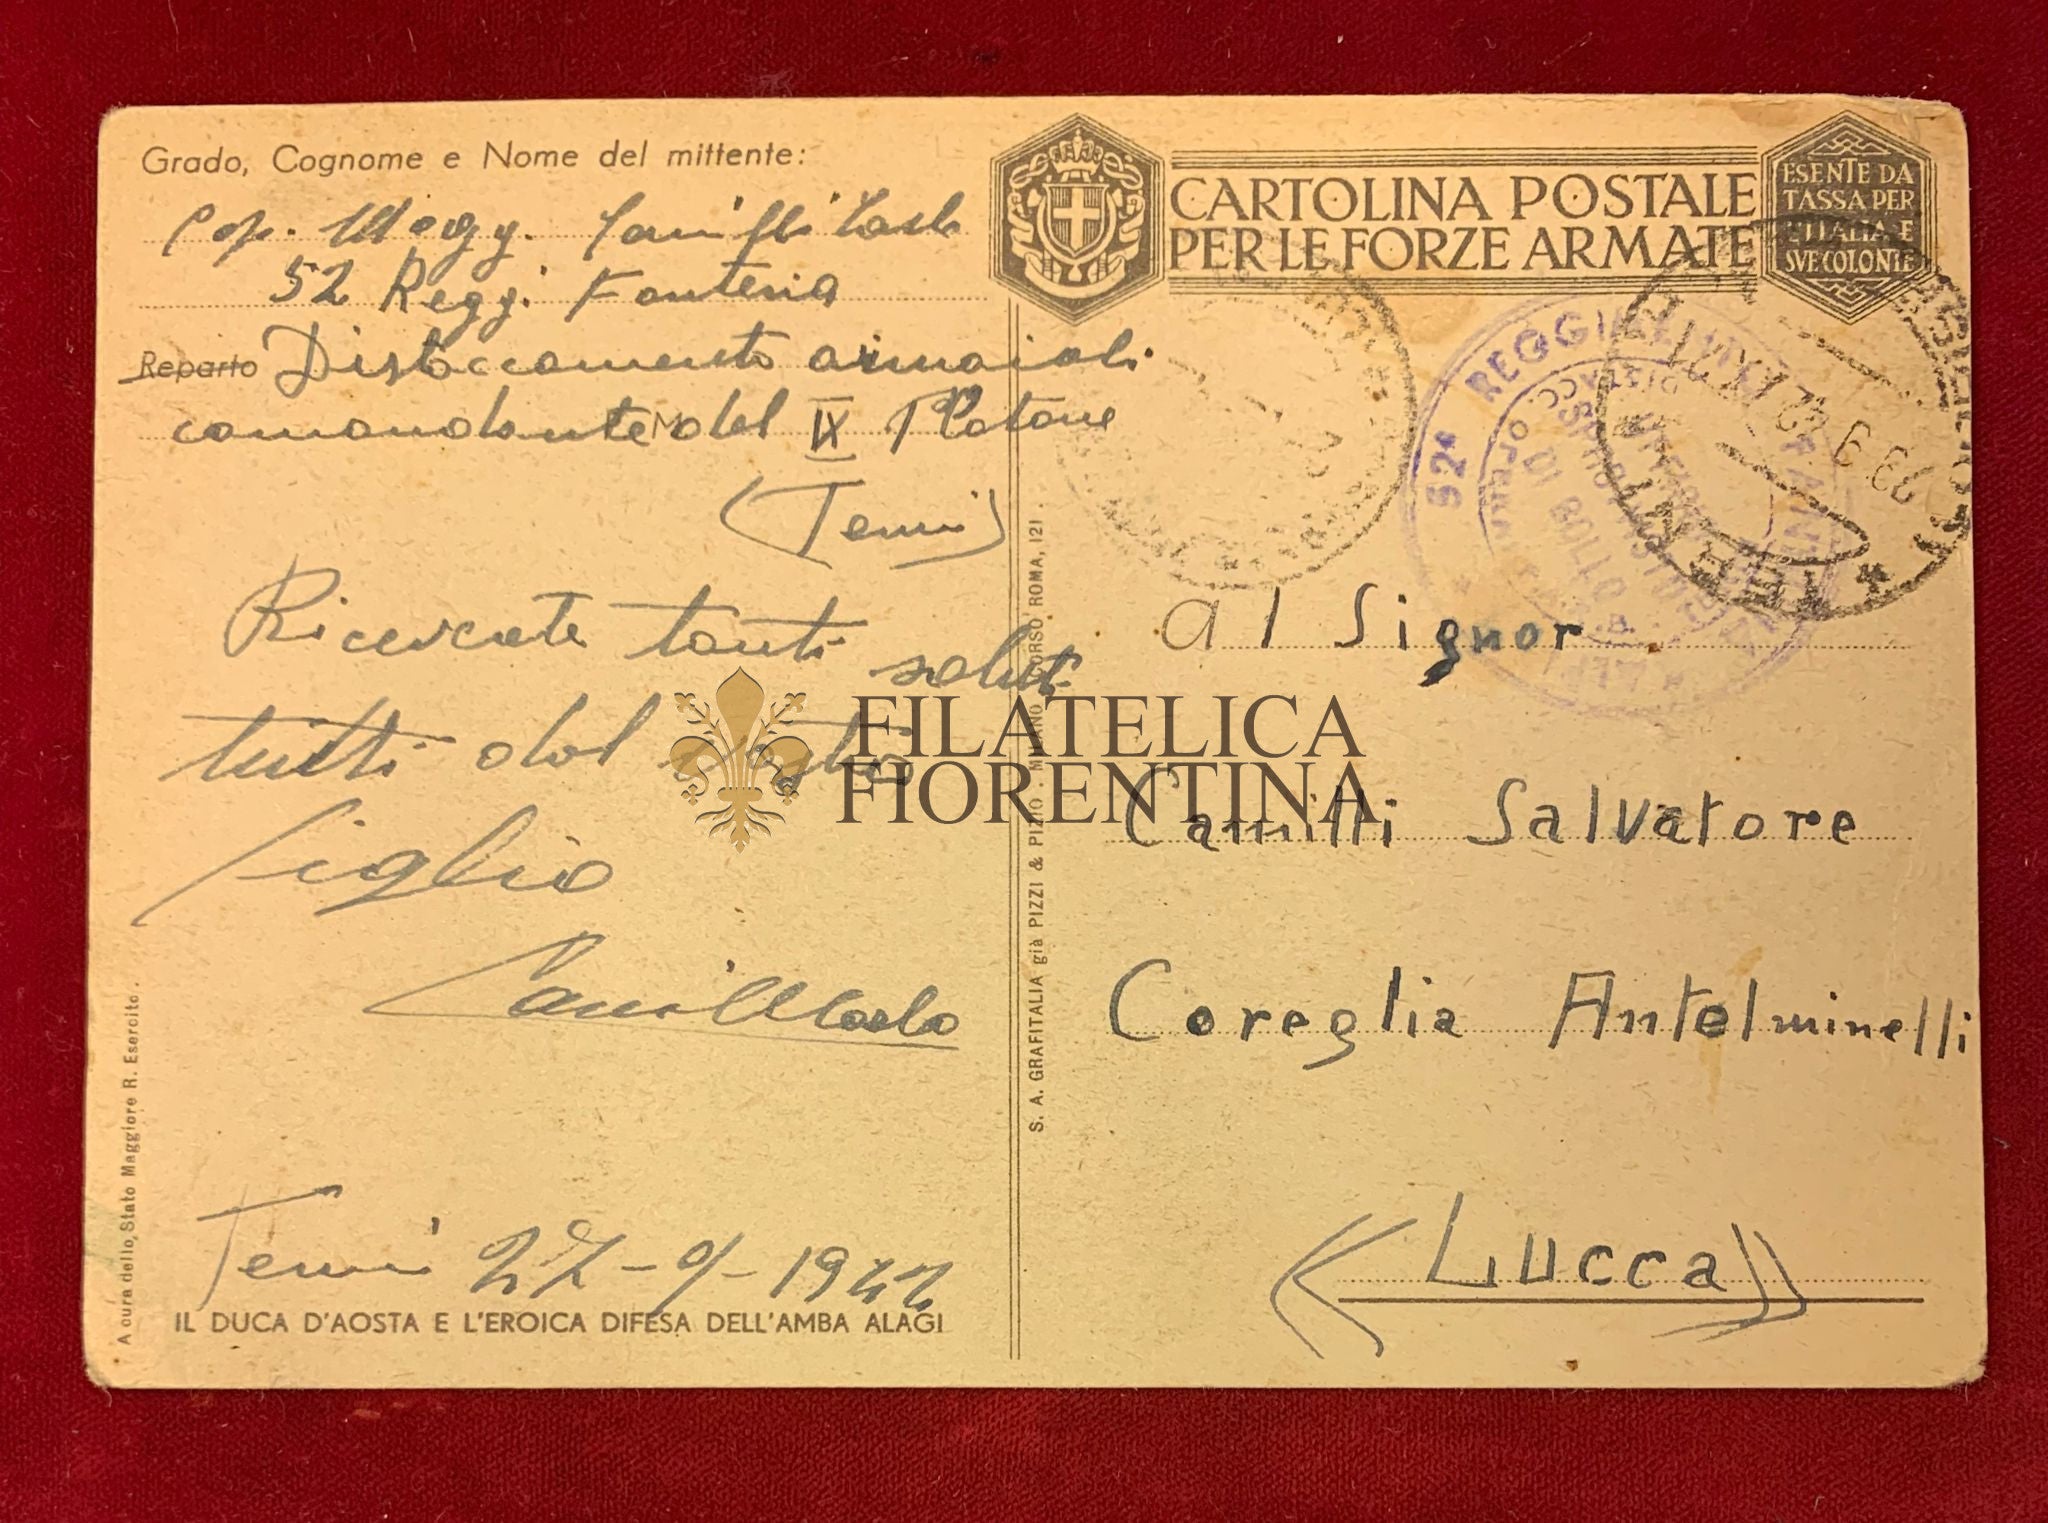 Grado, Cognome e Nome del mittente:
Cap. Magg. Camilli
52 Regg. Fanteria
Reparto Distaccamento armaioli
comandante del IX Plotone
(Terni)
Ricevete tanti saluti
tutti dal vostro
figlio
Camilli
Terni 27-9-1942
IL DUCA D'AOSTA E L'EROICA DIFESA DELL'AMBA ALAGI
A cura dello Stato Maggiore R. Esercito.
S. A. GRAFITALIA già PIZZI & PIZIO . MILANO . CORSO ROMA, 121 .
CARTOLINA POSTALE
PER LE FORZE ARMATE
ESENTE DA
TASSA PER
L'ITALIA E
SVE COLONIE
52° REGGIMENTO FANTERIA
DI BOLLO
TERNI
al Signor
Camilli Salvatore
Coreglia Antelminelli
(Lucca)
FILATELICA
FIORENTINA